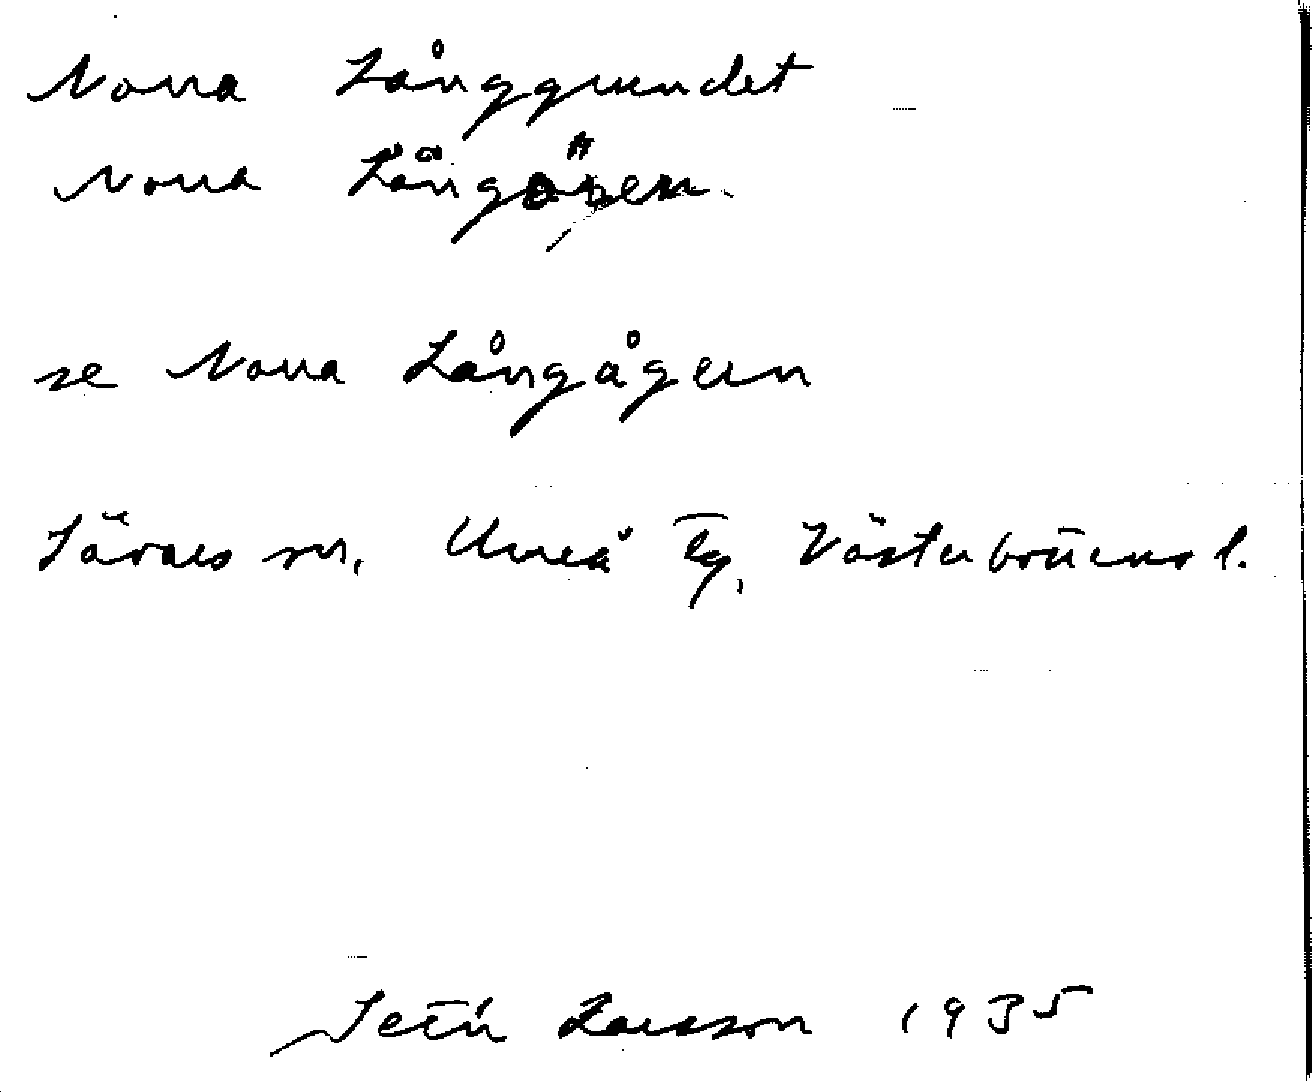 Norra Långgrundet
Norra Långören
se Norra Långågern
Sävars sn, Umeå tg, Västerbottens l.
Setn Larsson 1935